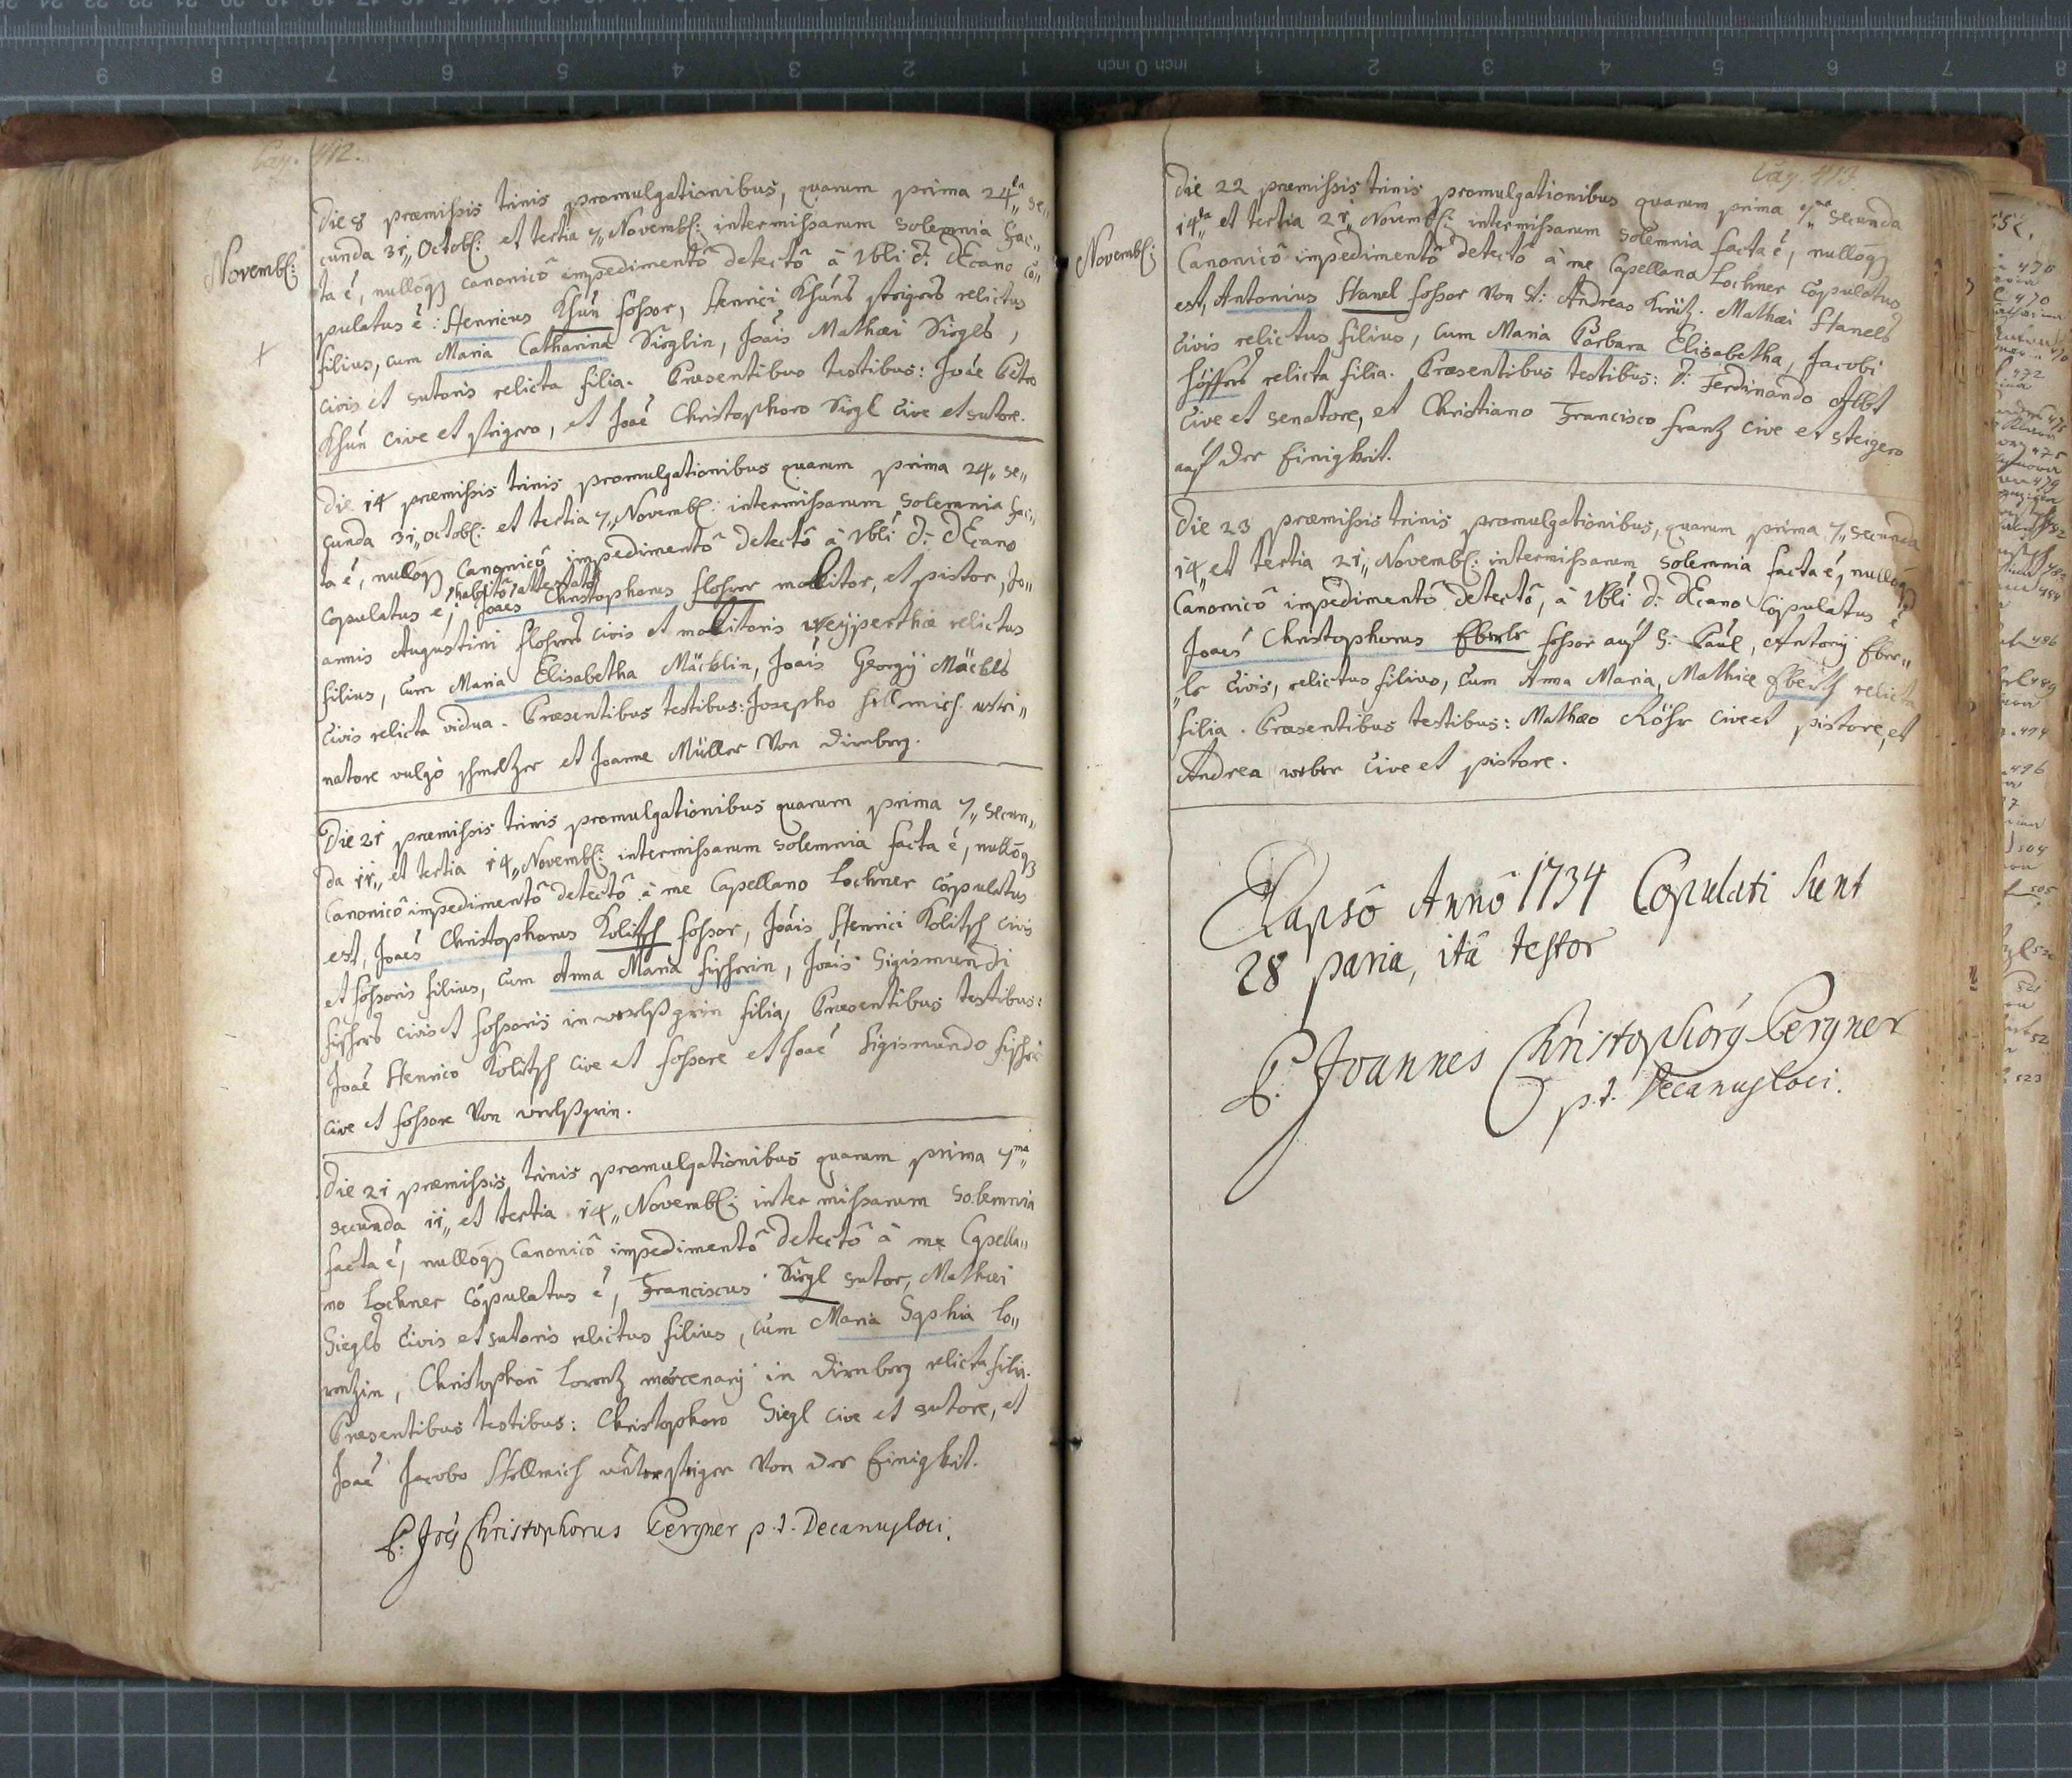 Pag. 412.
Novemb:
Die 8 præmissis trinis promulgationibus, quarum prima 24ta se„
cunda 31„ Octob: et tertia 7„ Novemb: intermissarum solemnia fac„
ta ē, nullôq canonicô impedimentô detectô à D: DEcano co„
pulatus ē: Henricus Khün fossor, Henrici Khüns steigers relictus
filius, cum Maria Catharina Sieglin, Joāis Mathæi Siegls,
civis et sutoris relicta filia. Præsentibus testibus: Joāe Petro
Khün cive et steigero, et Joāē Christophoro Siegl cive et sutore.
Die 14 præmissis trinis promulgationibus quarum prima 24„ se„
cunda 31„ octob: et tertia 7„ Novemb: intermissarum solemnia fac„
ta ē, nullôq Canonicô impedimentô detectô à D: DEcano
habitô attestatô
copulatus ē, Joāēs Christophorus flosser molitor, et pistor, Jo„
annis Augustini flossers civis et molitoris Weyperthæ relictus
filius, cum Maria Elisabetha Mäcklin, Joāis Georgij Mäckls
Civis relicta vidua. Præsentibus testibus: Josepho Hellmich ustri„
natore vulgò schmeltzer et Joanne Müller Von dirnberg.
Die 21 præmissis trinis promulgationibus quarum prima 7„ secun„
da 11„ et tertia 14„ Novemb: intermissarum solemnia facta ē, nullôq
Canonicô impedimentô detectô à me Capellano Lochner copulatus
est, Joāēs Christophorus Kolitsch fossor, Joāis Henrici Kolitsch civis
et fossoris filius, cum Anna Maria fischerin, Joāis Sigismundi
fischers civis et fossoris in filia, Præsentibus testibus:
Joāē Henrico Kolitsch cive et fossore et Joāē Sigismundo fischer
cive et fossore Von
Die 21 præmissis trinis promulgationibus quarum prima 7ma„
secunda 11„ et tertia 14„ Novemb: inter missarum solemnia
facta ē, nullôq Canonicô impedimentô detectô à me Capella„
no Lochner copulatus ē, Franciscus Siegl sutor, Mathæi
Siegls Civis et sutoris relictus filius, cum Maria Sophia Lo„
rentzin, Christophori Lorentz mercenarij in dirnberg relicta filia.
Præsentibus testibus: Christophoro Siegl cive et sutore, et
Joāē Jacobo Hellmich untersteiger Von der Einigkeit.
P. Joēs Christophorus Pergner p.t. Decanus loci.
Pag. 413.
Novemb:
Die 22 præmissis trinis promulgationibus quarum prima 7ma„ secunda
14ta„ et tertia 21„ Novemb: intermissarum solemnia facta ē, nullôq
Canonicô impedimentô detectô à me Capellano Lochner copulatus
est, Antonius Hanel fossor Von St: Andreas Kreütz. Mathæi Hanels
Civis relictus filius, cum Maria Barbara Elisabetha, Jacobi
relicta filia. Præsentibus testibus: D: Ferdinando Albt
Cive et senatore, et Christiano Francisco frantz cive et steigero
auf der Einigkeit.
Die 23 præmissis trinis promulgationibus, quarum prima 7„ secunda
14„ et tertia 21„ Novemb: intermissarum solemnia facta ē, nullôq
Canonicô impedimentô detectô, à D: DEcano copulatus ē
Joāēs Christophorus Eberle fossor auf S: Paul, Antonij Eber„
„le Civis, relictus filius, cum Anna Maria, Mathiæ relicta
filia. Præsentibus testibus: Mathæo Röhr cive et pistore, et
Andrea weber Cive et pistore.
Elapsô Annô 1734 Copulati sunt
28 paria, ità testor
P. Joannes Christophorg Pergner
p.t. Decanus loci.